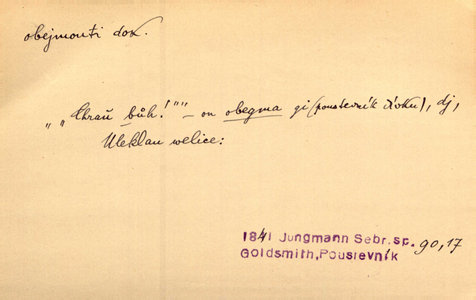 obejmouti dok.
„ „Chraň bůh!“ “ – on obegma gi (poustevník dívku), dj,
Uleklau welice:
1841 Jungmann Sebr.sp. 90,17
Goldsmith,Poustevník